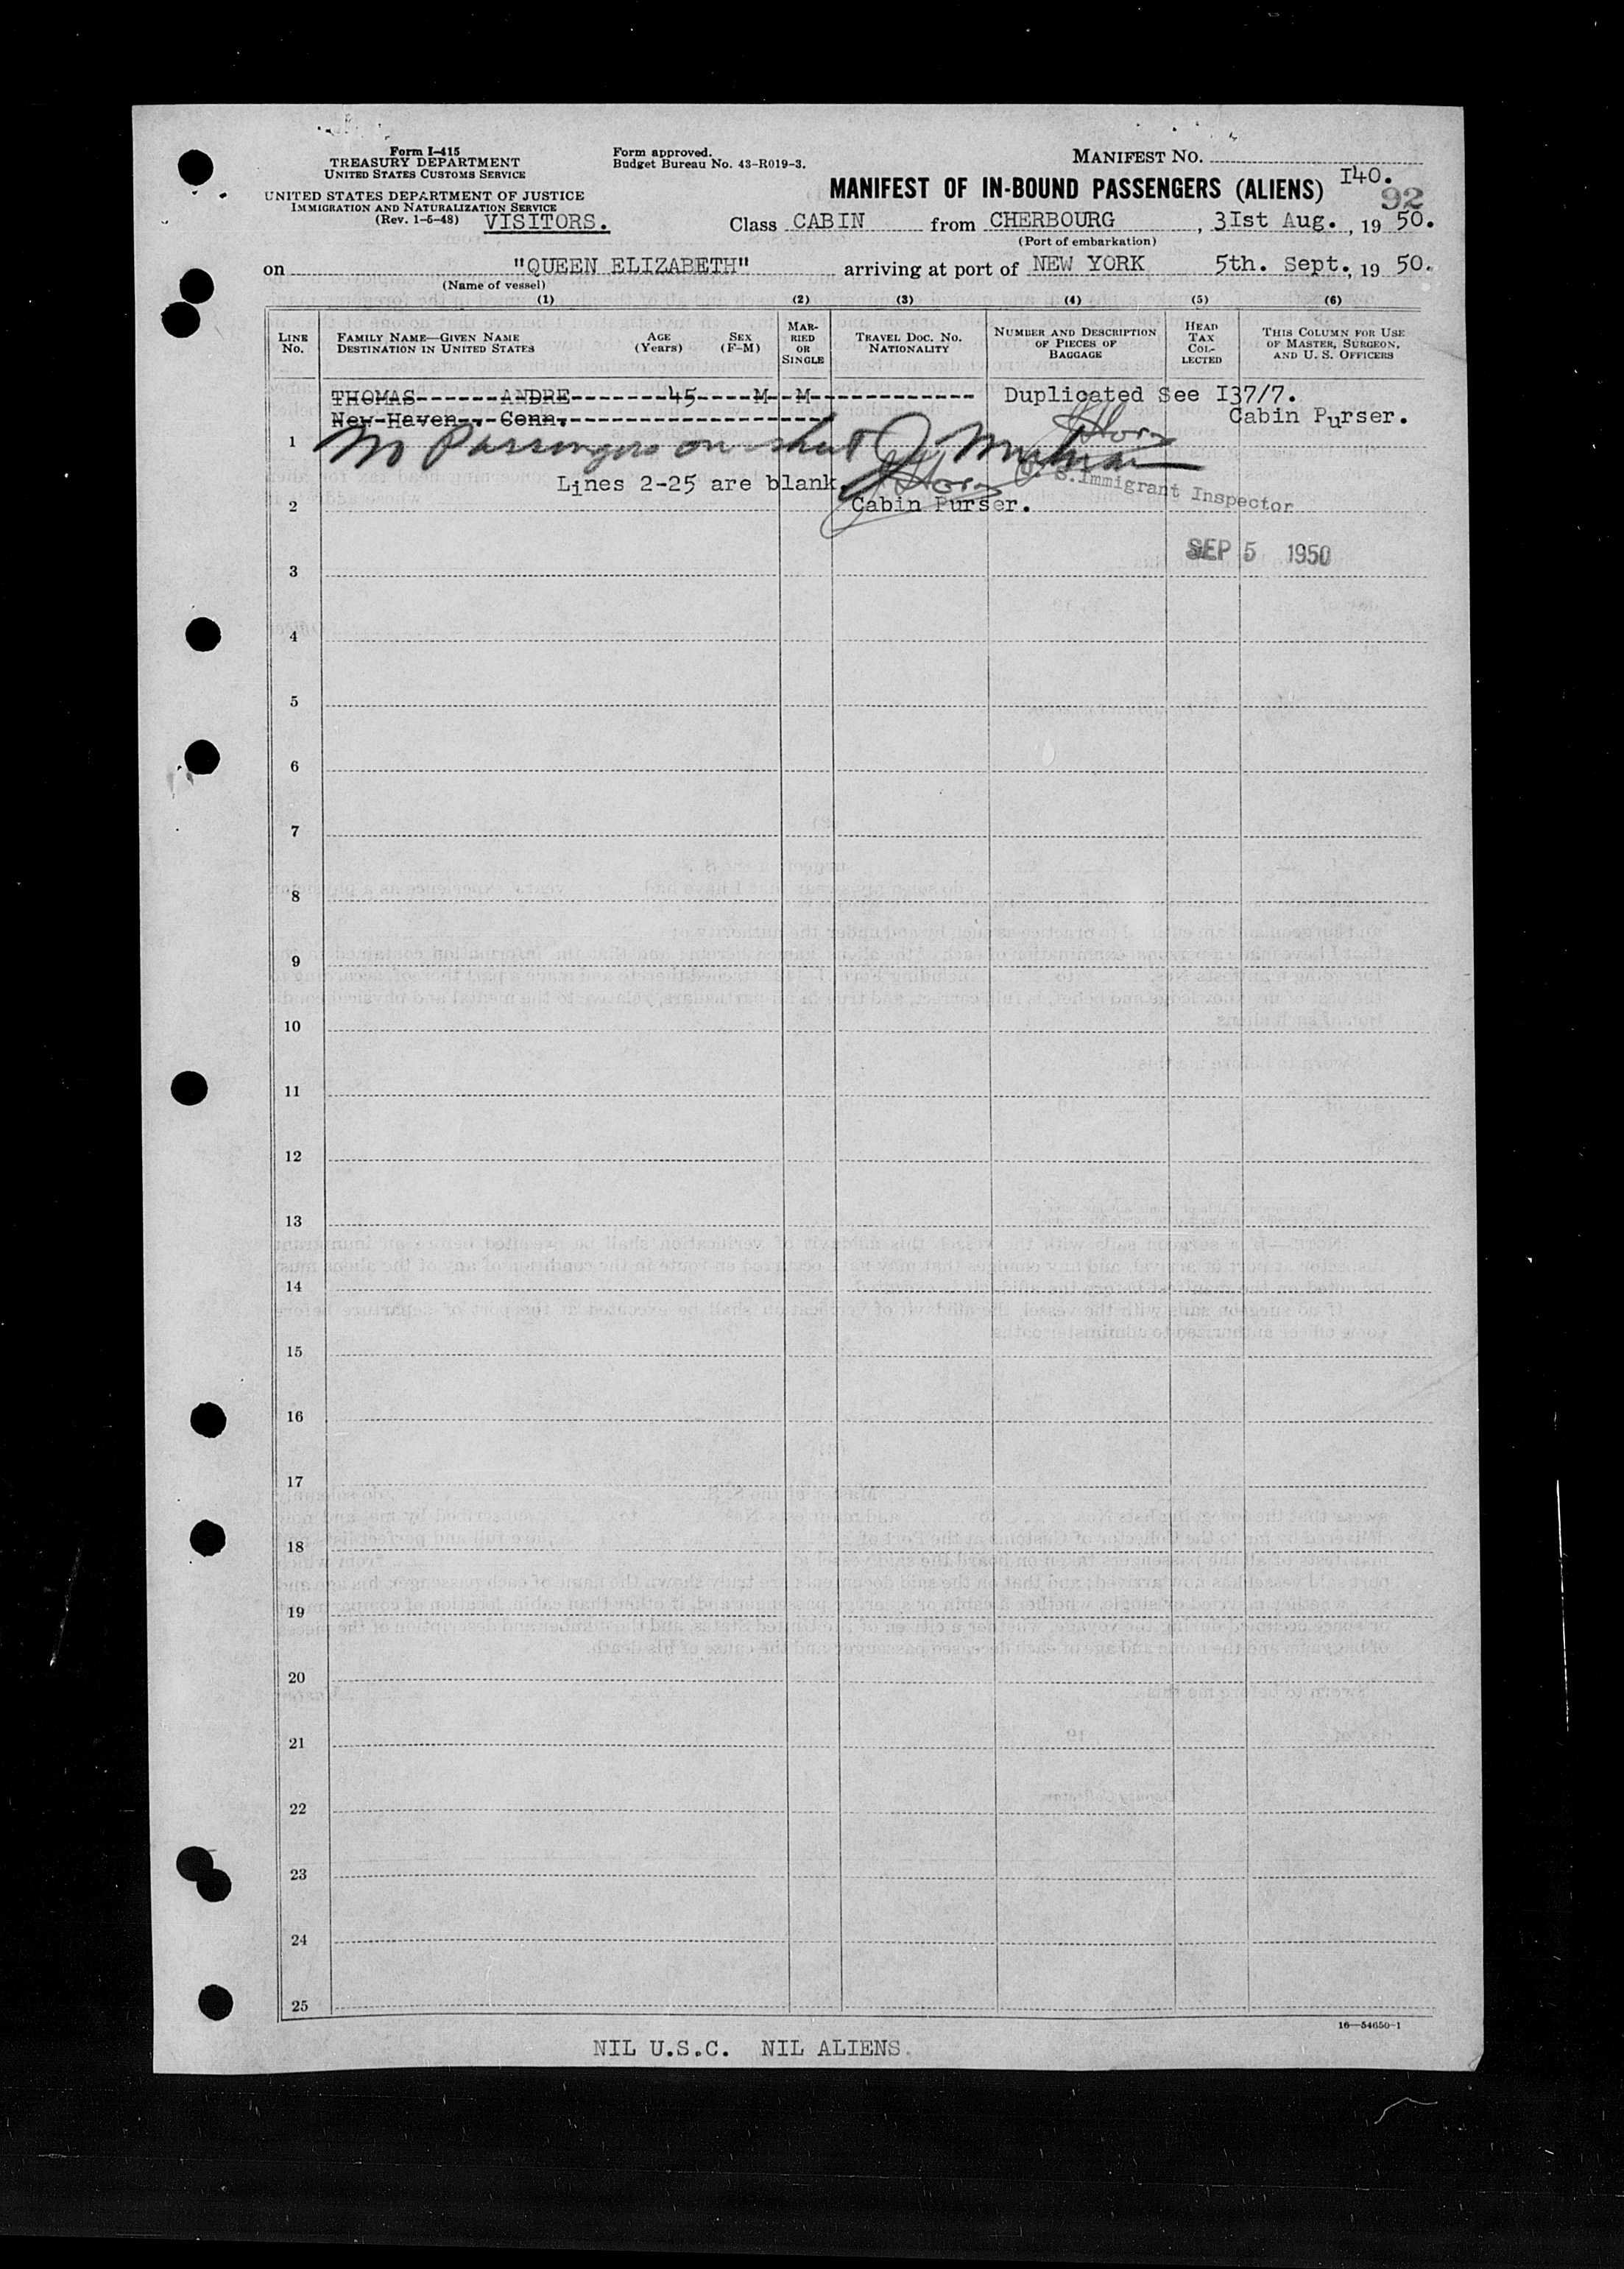 Form I-415
TREASURY DEPARTMENT
UNITED STATES CUSTOMS SERVICE
UNITED STATES DEPARTMENT OF JUSTICE
IMMIGRATION AND NATURALIZATION SERVICE
(Rev. 1-6-48) VISITORS.
Form approved.
Budget Bureau No. 43-R019-3.
MANIFEST NO.
I40.
MANIFEST OF IN-BOUND PASSENGERS (ALIENS)
92
Class CABIN from CHERBOURG, 3Ist Aug., 19 50.
(Port of embarkation)
on "QUEEN ELIZABETH" arriving at port of NEW YORK 5th. Sept., 19 50.
(Name of vessel)
(1) (2) (3) (4) (5) (6)
LINE No.
FAMILY NAME—GIVEN NAME DESTINATION IN UNITED STATES
AGE (Years)
SEX (F-M)
MARRIED OR SINGLE
TRAVEL DOC. NO. NATIONALITY
NUMBER AND DESCRIPTION OF PIECES OF BAGGAGE
HEAD TAX COLLECTED
THIS COLUMN FOR USE OF MASTER, SURGEON, AND U. S. OFFICERS
THOMAS------ANDRE-------45----M--M------------ Duplicated See I37/7.
New Haven., Conn. Cabin Purser.
1 No Passengers on sheet
Lines 2-25 are blank.
S. Immigrant Inspector
2 Cabin Purser.
SEP 5 1950
3
4
5
6
7
8
9
10
11
12
13
14
15
16
17
18
19
20
21
22
23
24
25
16—54650-1
NIL U.S.C. NIL ALIENS.